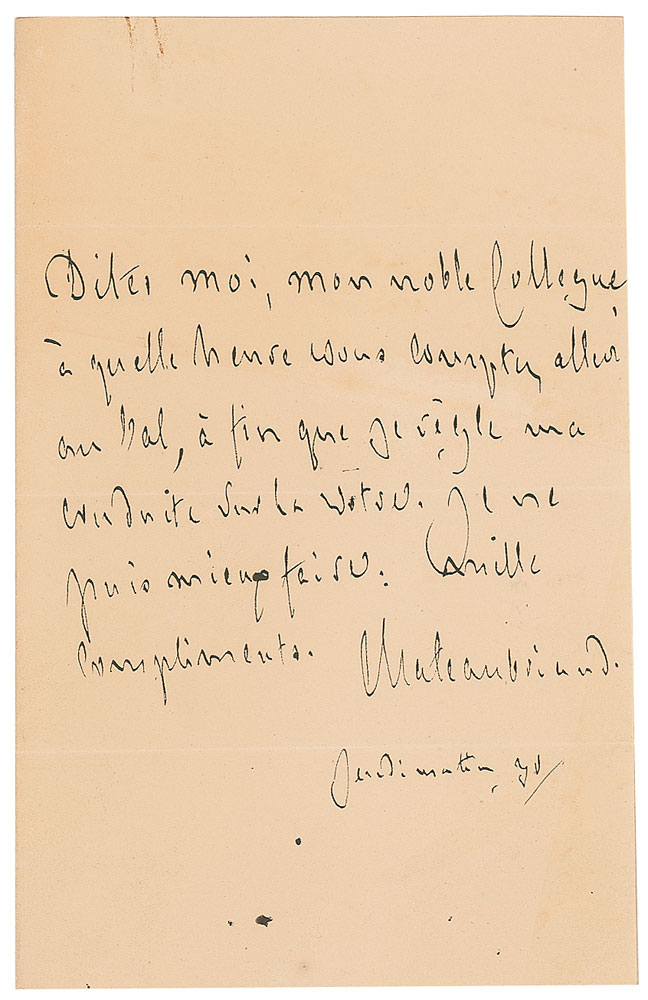 Dites moi, mon noble Collegue
à quelle heure vous comptez aller
au bal, à fin que je règle ma
conduite sur la vôtre. Je ne
puis mieux faire. mille
compliments. Chateaubriand.
Jeudi matin